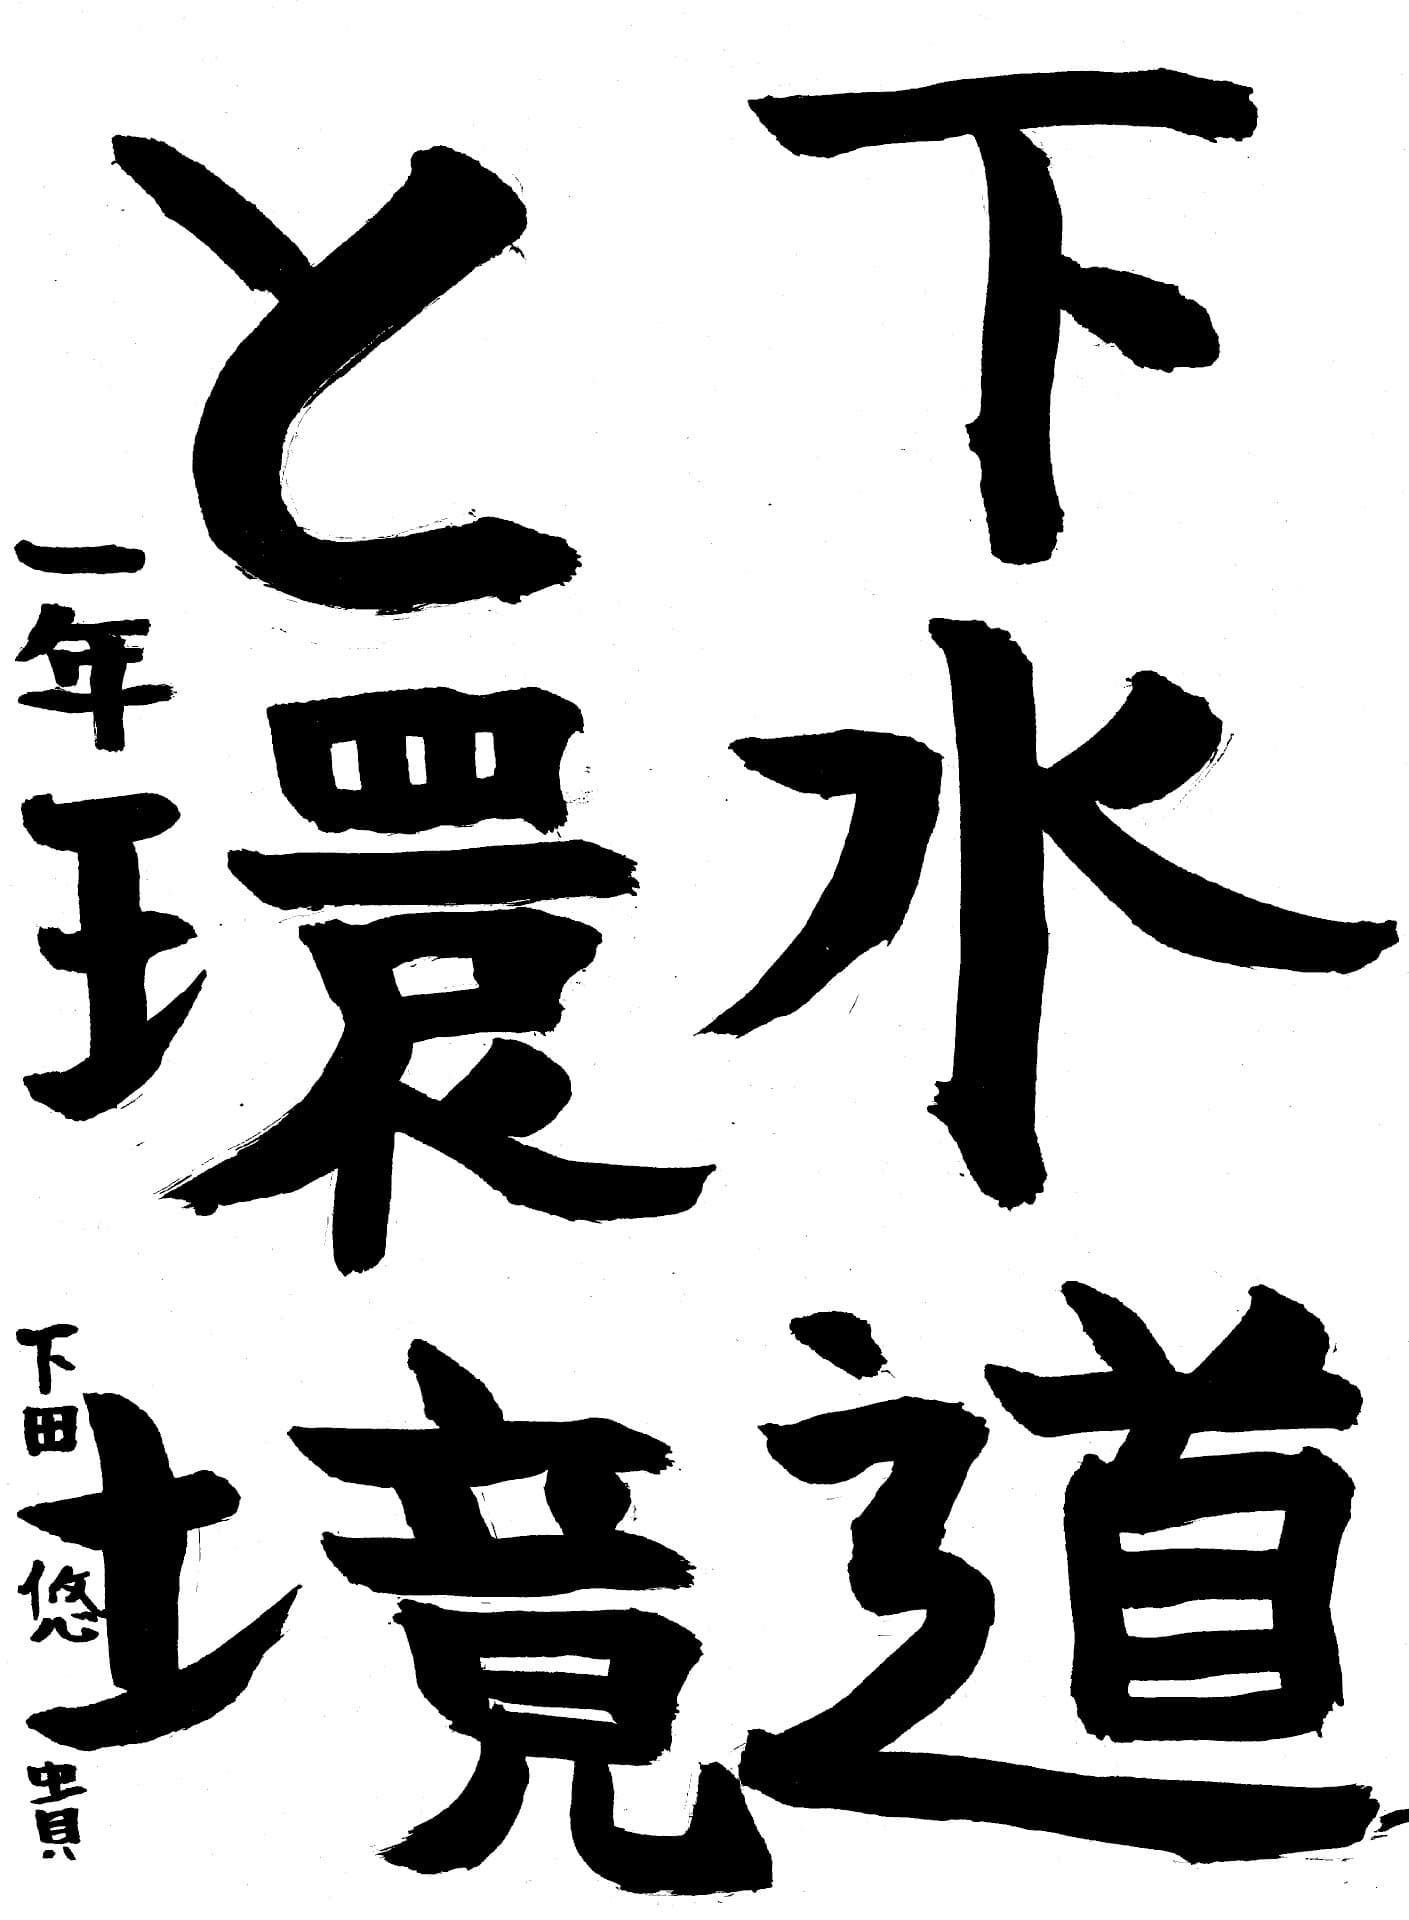 下水道
と環境
一年 下田悠貴